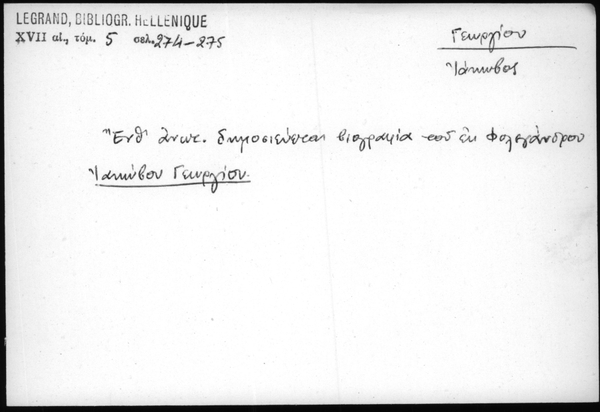 LEGRAND, BIBLIOGR. HELLENIQUE
XVII αἰ., τόμ. 5 σελ. 274-275
Γεωργίου
Ἰάκωβος
Ἔνθ' ἀνωτ. δημοσιεύεται βιογραφία τοῦ ἐκ Φολεγάνδρου
Ἰακώβου Γεωργίου.